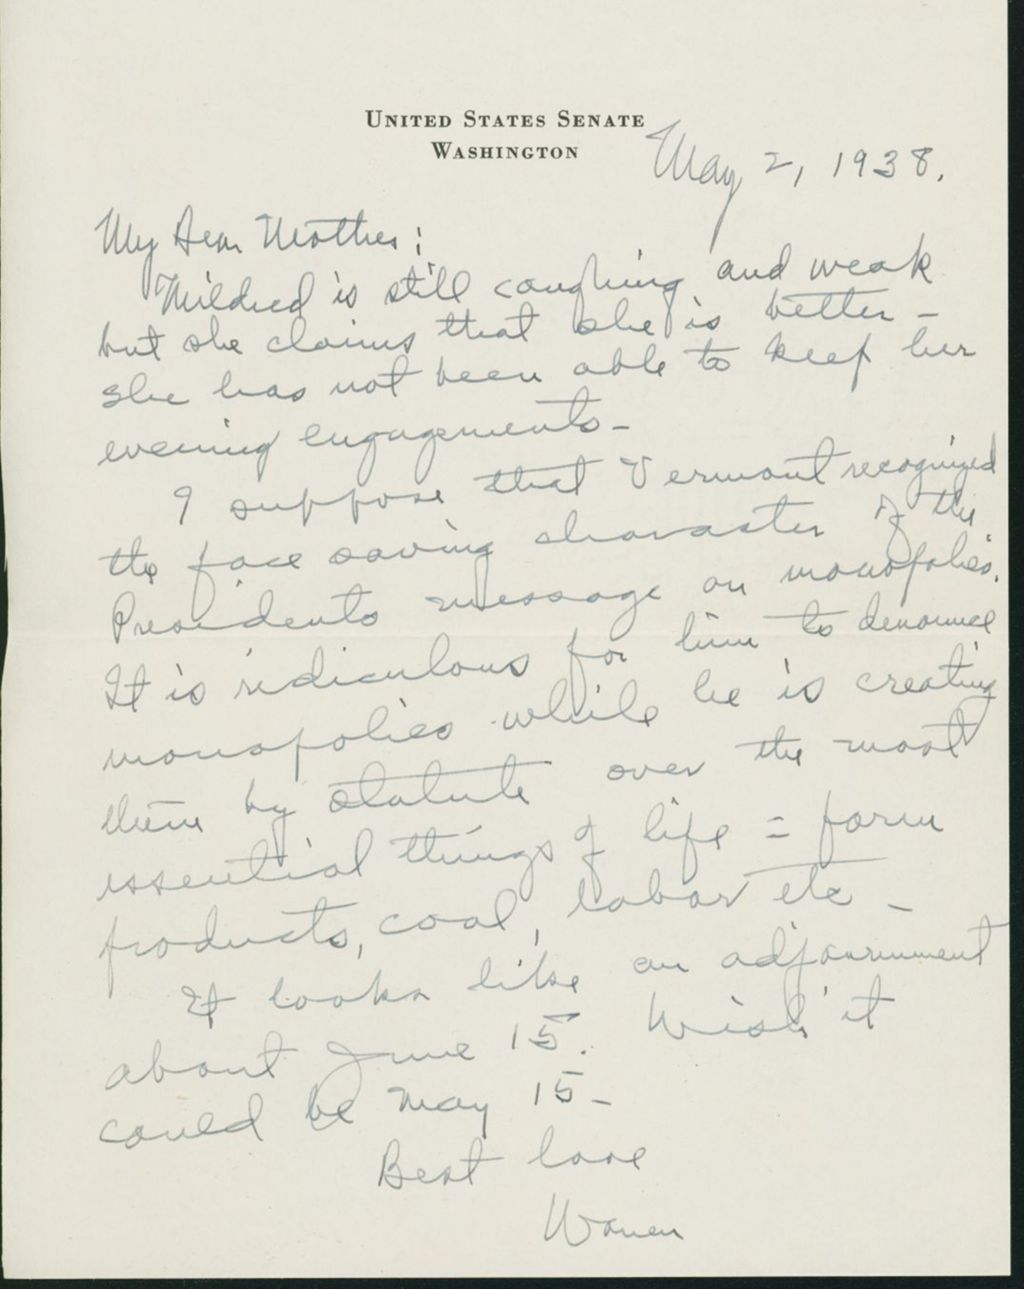 UNITED STATES SENATE
WASHINGTON
May 2, 1938.
My Dear Mother:
Mildred is still coughing and weak
but she claims that she is better –
she has not been able to keep her
evening engagements –
I suppose that Vermont recognized
the face saving character of the
Presidents message on monopolies.
It is ridiculous for him to denounce
monopolies while he is creating
them by statute over the most
essential things of life = farm
products, coal, labor etc –
It looks like an adjournment
about June 15. Wish it
could be May 15 –
Best love
Warren